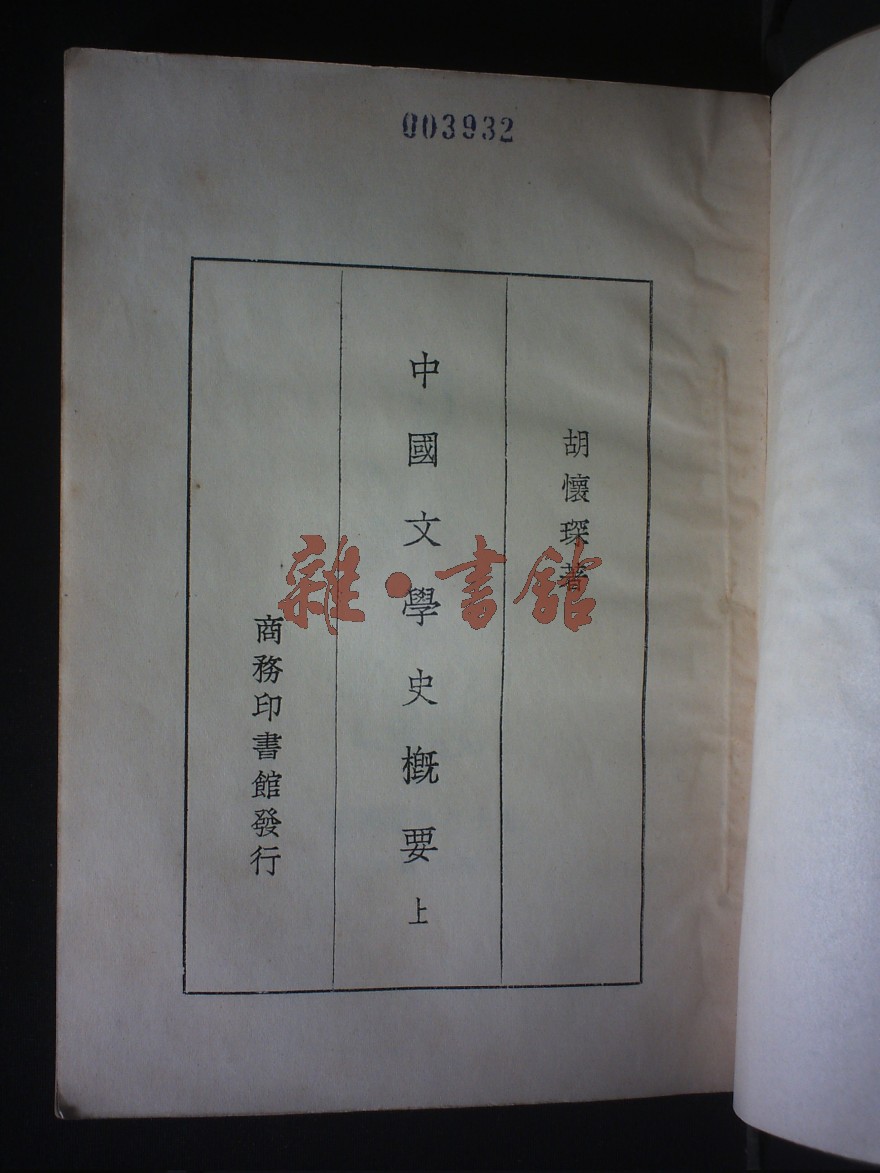 003932
胡懷琛著
中國文學史概要 上
商務印書館發行
雜·書館